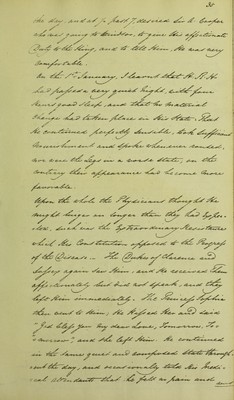 38
the day, and at ½ past 7, desired Sir A. Cooper
who was going to Windsor, to give his affectionate
Duty to the King, and to tell Him, He was very
comfortable.
On the 1st January, I learnt that H. R. H.
had passed a very good Night, with four
hours good sleep, and that no material
change had taken place in His State. That
He continued perfectly sensible, took sufficient
Nourishment and spoke whenever roused,
nor were the Legs in a worse state, on the
contrary their appearance had become more
favorable.
Upon the whole the Physicians thought He
might linger on longer than they had expec-
ted, such was the Extraordinary Resistance
which His Constitution opposed to the Progress
of the Disease. — The Dukes of Clarence and
Sussex again saw Him, and He received Them
affectionately but did not speak, and they
left Him immediately. The Princess Sophia
then went to Him; He Kissed Her and said
"God bless You my dear Love, Tomorrow, To-
morrow", and she left Him. He continued
in the same quiet and composed State through-
out the day, and occasionally told His Medi-
cal attendants that he felt no pain and